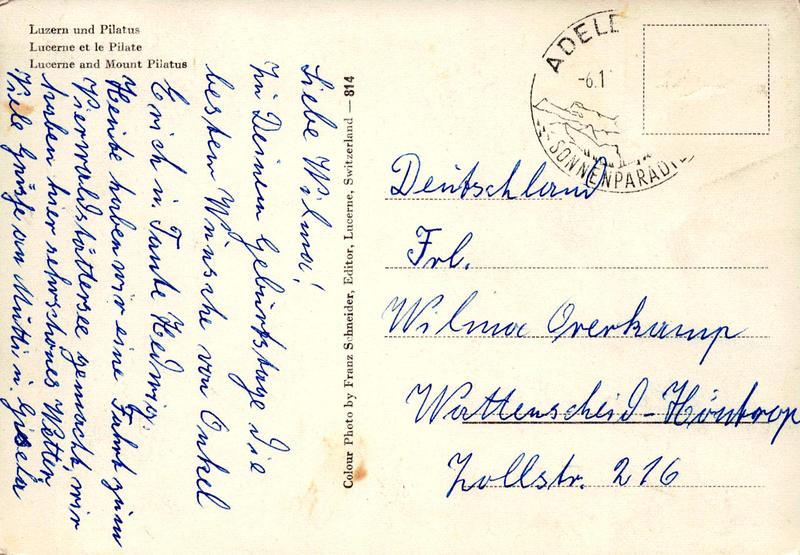 Luzern und Pilatus
Lucerne et le Pilate
Lucerne and Mount Pilatus
Liebe Wilma!
Zu Deinem Geburtstage die
besten Wünsche von Onkel
Erich u. Tante Hedwig.
Heute haben wir eine Fahrt zum
Vierwaldstättersee gemacht, wir
haben hier sehr schönes Wetter
Viele Grüße an Mutti u. Gisela
Colour Photo by Franz Schneider, Editor, Lucerne, Switzerland — 814
ADELB
-6.1
SONNENPARADIE
Deutschland
Frl.
Wilma Overkamp
Wattenscheid-Höntrop
Zollstr. 216